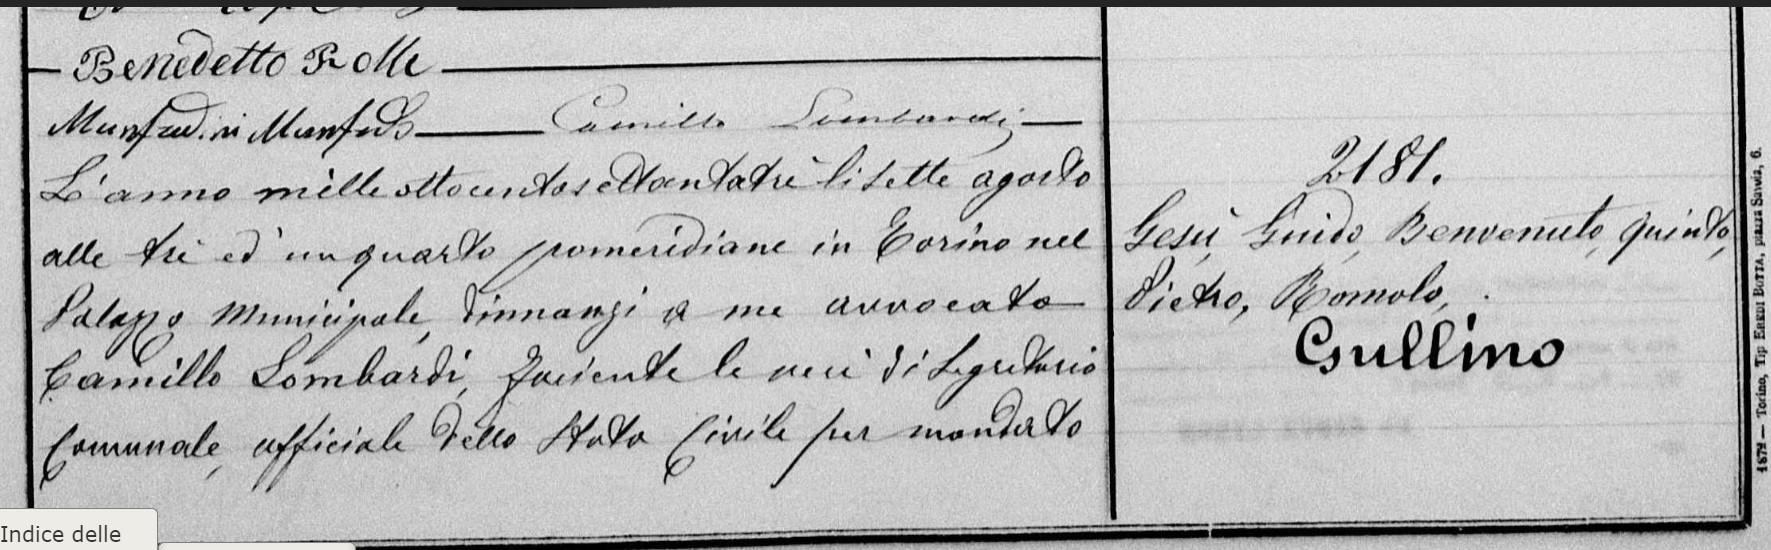 Benedetto Rolle
Manfredini Manfredo Camillo Lombardi
L'anno mille ottocentosettantatrè li sette agosto
alle tre ed un quarto pomeridiane in Torino nel
Palazzo Municipale, dinnanzi a me avvocato
Camillo Lombardi, facente le veci di Segretario
Comunale, uffiziale dello Stato Civile per mandato
2181.
Gesù, Guido, Benvenuto, quinto,
Pietro, Romolo,
Gullino
1872 — Torino, Tip EREDI BOTTA, piazza Savoia, 6.
Indice delle